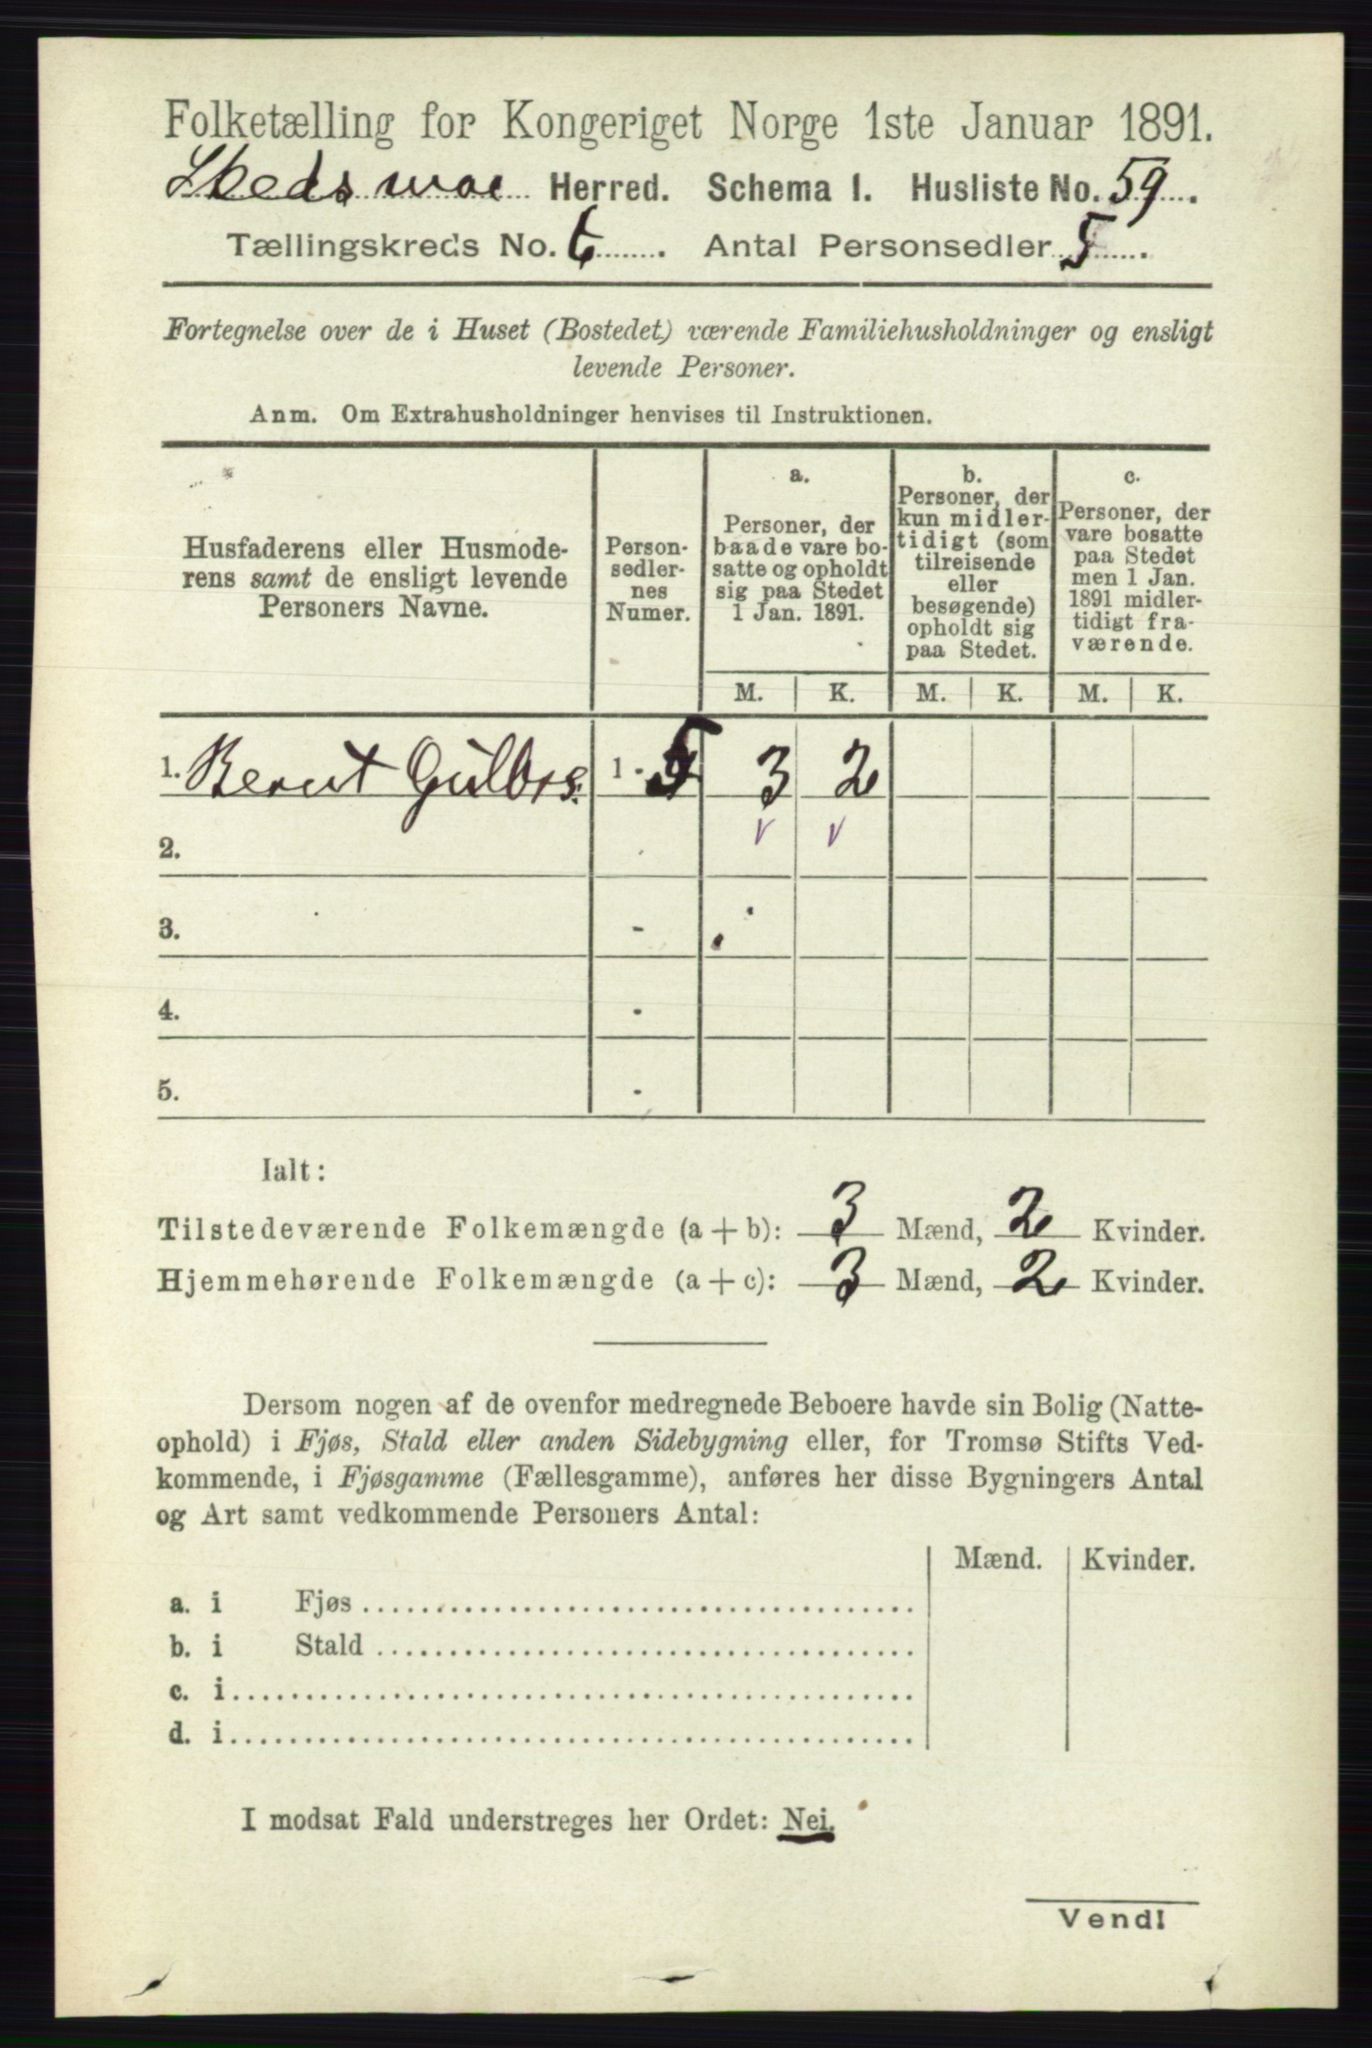 Folketælling for Kongeriget Norge 1ste Januar 1891.
Skedsmoe Herred. Schema 1. Husliste No. 59.
Tællingskreds No. 6. Antal Personsedler 5.
Fortegnelse over de i Huset (Bostedet) værende Familiehusholdninger og ensligt
levende Personer.
Anm. Om Extrahusholdninger henvises til Instruktionen.
Husfaderens eller Husmode-
rens samt de ensligt levende
Personers Navne.
Person-
sedler-
nes
Numer.
a.
Personer, der
baade vare bo-
satte og opholdt
sig paa Stedet
1 Jan. 1891.
b.
Personer, der
kun midler-
tidigt (som
tilreisende
eller
besøgende)
opholdt sig
paa Stedet.
c.
Personer, der
vare bosatte
paa Stedet
men 1 Jan.
1891 midler-
tidigt fra-
værende.
M. K. M. K. M. K.
1. Bernt Gulbrs. 1 - 5 3 2
2. -
3. -
4. -
5. -
Ialt:
Tilstedeværende Folkemængde (a + b): 3 Mænd, 2 Kvinder.
Hjemmehørende Folkemængde (a + c): 3 Mænd, 2 Kvinder.
Dersom nogen af de ovenfor medregnede Beboere havde sin Bolig (Natte-
ophold) i Fjøs, Stald eller anden Sidebygning eller, for Tromsø Stifts Ved-
kommende, i Fjøsgamme (Fællesgamme), anføres her disse Bygningers Antal
og Art samt vedkommende Personers Antal:
Mænd. Kvinder.
a. i Fjøs
b. i Stald
c. i
d. i
I modsat Fald understreges her Ordet: Nei.
Vend!